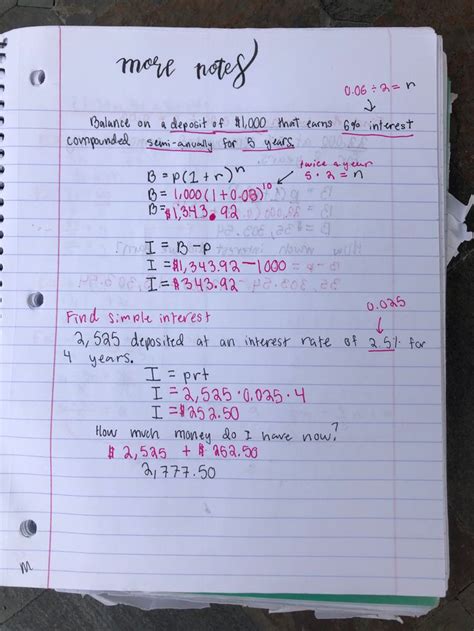 more notes
0.06 ÷ 2 = r
Balance on a deposit of $1,000 that earns 6% interest
compounded semi-anually for 5 years.
B = p(1+r)^n
twice a year
5 · 2 = n
B = 1,000(1+0.03)^10
B = $1,343.92
I = B - p
I = $1,343.92 - 1000
I = $343.92
0.025
Find simple interest
2,525 deposited at an interest rate of 2.5% for
4 years.
I = prt
I = 2,525 · 0.025 · 4
I = $252.50
How much money do I have now?
$ 2,525 + $ 252.50
2,777.50
M